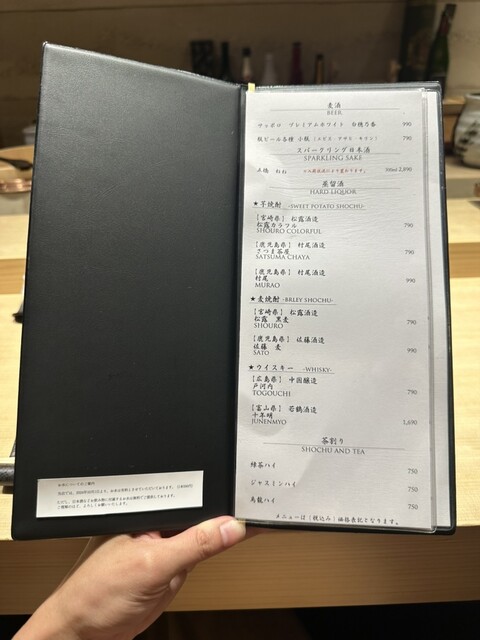 麦酒
BEER
サッポロ プレミアムホワイト 白穂乃香 990
瓶ビール各種 小瓶（エビス・アサヒ・キリン） 790
スパークリング日本酒
SPARKLING SAKE
五橋 ねね 300ml 2,890
蒸留酒
HARD LIQUOR
★芋焼酎 -SWEET POTATO SHOCHU-
【宮崎県】 松露酒造
松露カラフル 790
SHOURO COLORFUL
【鹿児島県】 村尾酒造
さつま茶屋 790
SATSUMA CHAYA
【鹿児島県】 村尾酒造
村尾 990
MURAO
★麦焼酎 -BRLEY SHOCHU-
【宮崎県】 松露酒造
松露 黒麦 790
SHOURO
【鹿児島県】 佐藤酒造
佐藤 麦 990
SATO
★ウイスキー -WHISKY-
【広島県】 中国醸造
戸河内 790
TOGOUCHI
【富山県】 若鶴酒造
十年明 1,690
JUNENMYO
茶割り
SHOCHU AND TEA
緑茶ハイ 750
ジャスミンハイ 750
烏龍ハイ 750
メニューは（税込み）価格表記となります。